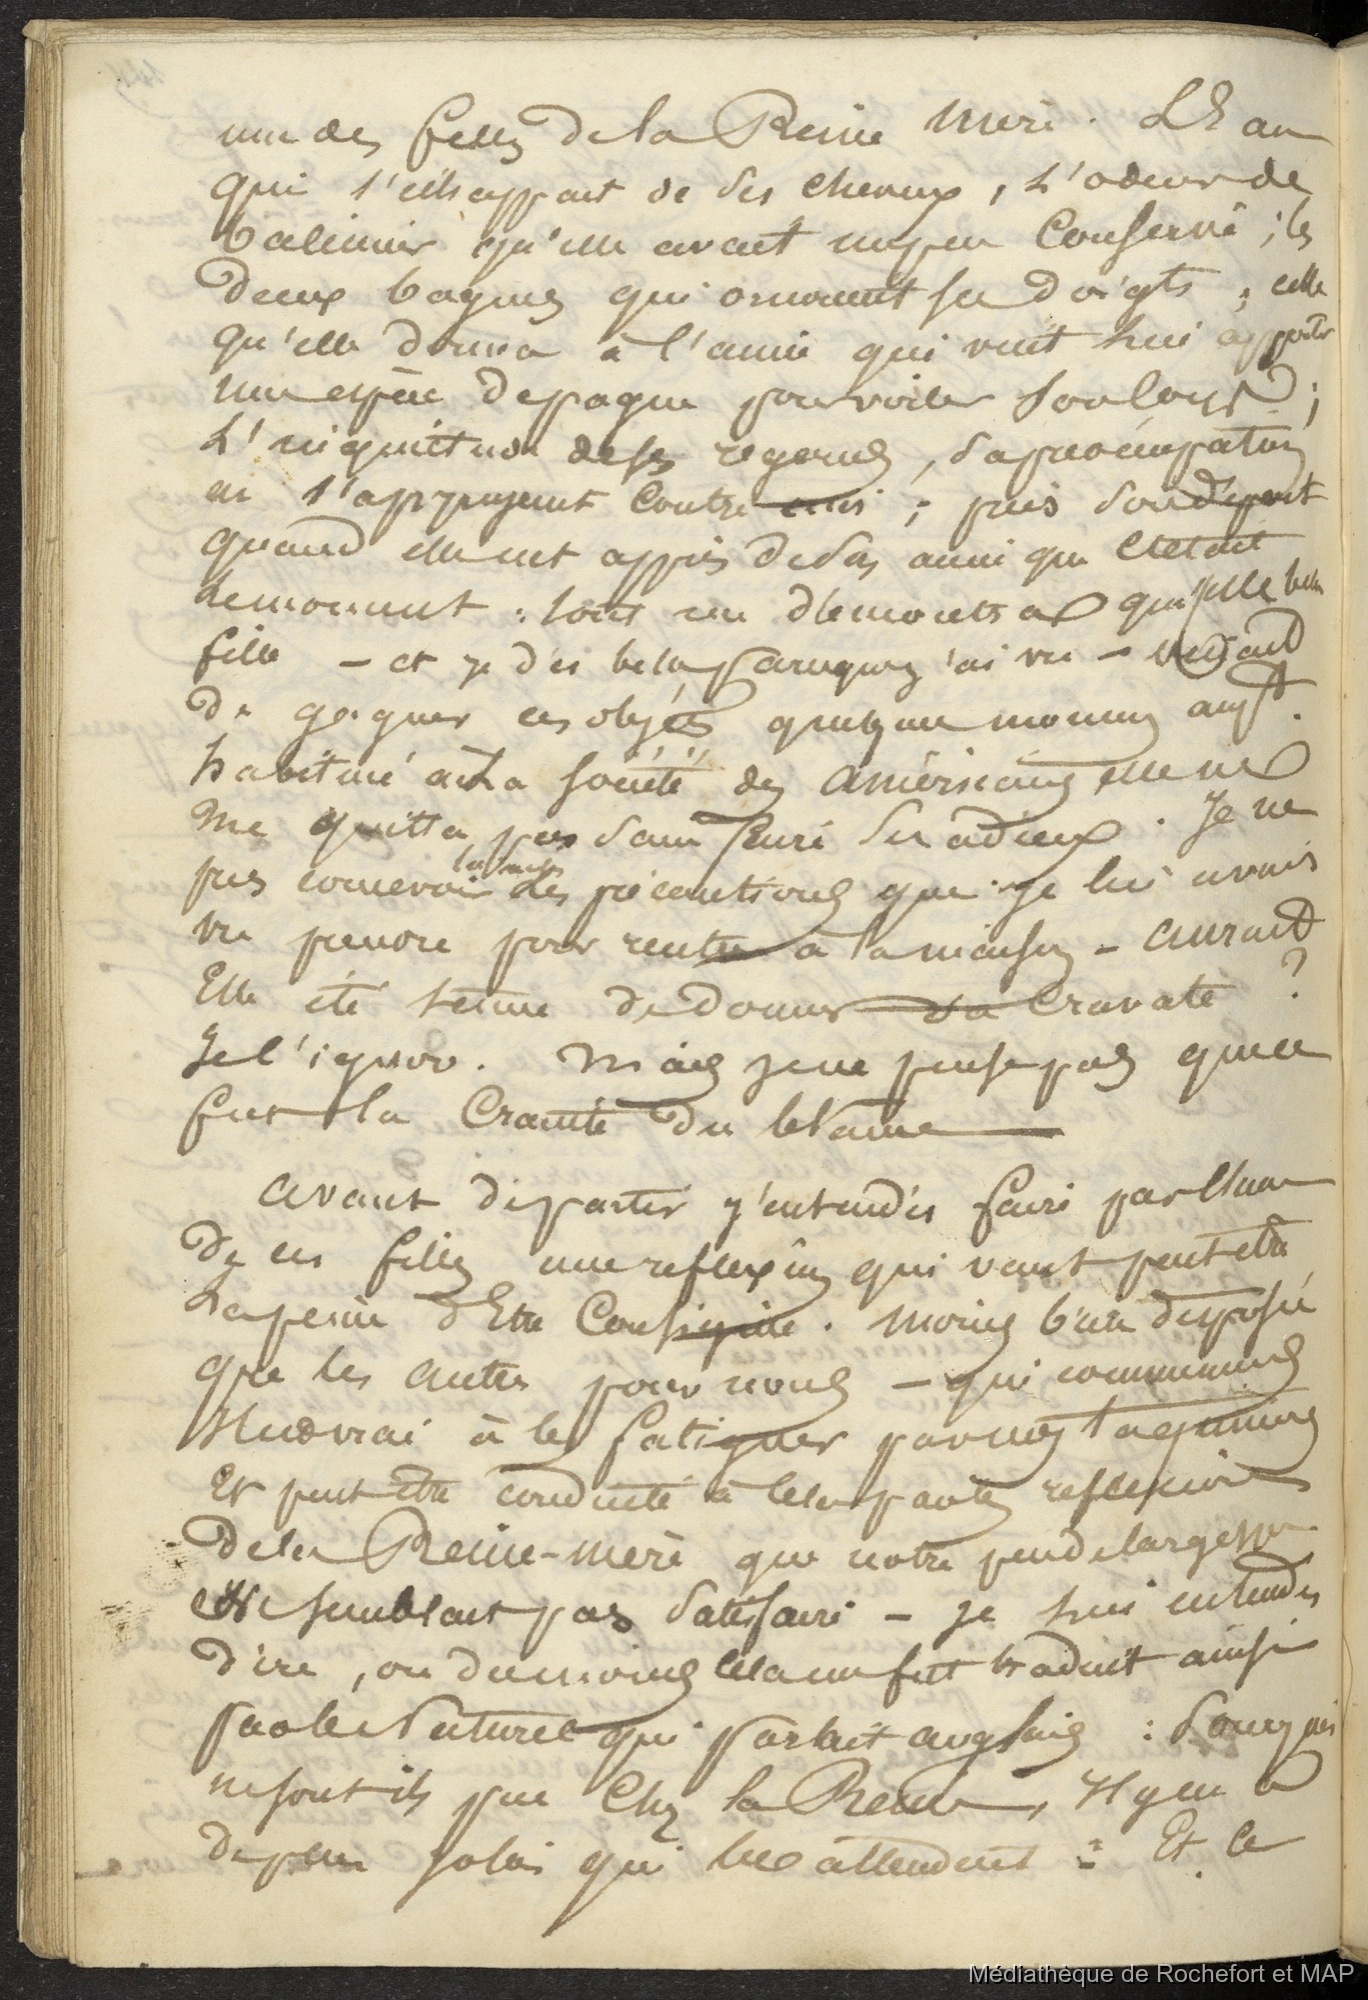 une des filles de la Reine mère. L'Eau
qui s'échappait de ses cheveux, L'odeur de
qu'elle avait un peu Conservé ; les
deux bagues qui ornaient ses doigts ; celle
qu'elle donna à l'amie qui vint lui apporter
une espèce de pagne pour voiler son corps ;
L'inquiétude de ses regards, sa préoccupation
en s'appuyant Contre moi ; puis son départ
quand elle eut appris de son amie que C'était
Le moment : tout me démontra que cette belle
fille – et je dis belle parceque je l'ai vue –
de gagner ces objets quelques momens
habitué à La société des américains elle ne
me quitta pas sans faire ses adieux. Je ne
pus concevoir les précautions que je lui avais
vu prendre pour rentrer à la maison – aurait
Elle été tenue de donner sa Cravate ?
Je l'ignore. Mais je ne pense pas que ce
fut la Crainte du blâme

avant de partir j'entendis faire par l'une
de ces filles une reflexion qui vaut peut être
La peine d'Etre Consignée. Moins bien disposée
que les autres pour nous – qui commencions
il est vrai à les fatiguer par nos taquineries
Et peut être conduite à cela par les reflexions
de la Reine-mère que notre peu de largesse
ne semblait pas satisfaire – je lui entendis
dire, ou du moins cela me fut traduit ainsi
par le naturel qui parlait anglais : Pourquoi
ne sont ils pas Chez la Reine, Il y en a
de plus jolies qui les attendent : Et. Ce
Médiathèque de Rochefort et MAP